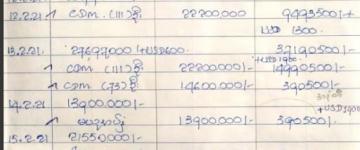 12.2.21 CDM (111) ဦး 22200,000 94935001-+
USD 1300.
13.2.21. 27697000 + USD600. 371905001-
+USD1900
CDM (111) ဦး 222000001- 149905001-
CDM (73) ဦး 146000001- 3905001-
14.2.21 139000001- +USD1900
139000001- 3905001.
15.2.21 215500001-